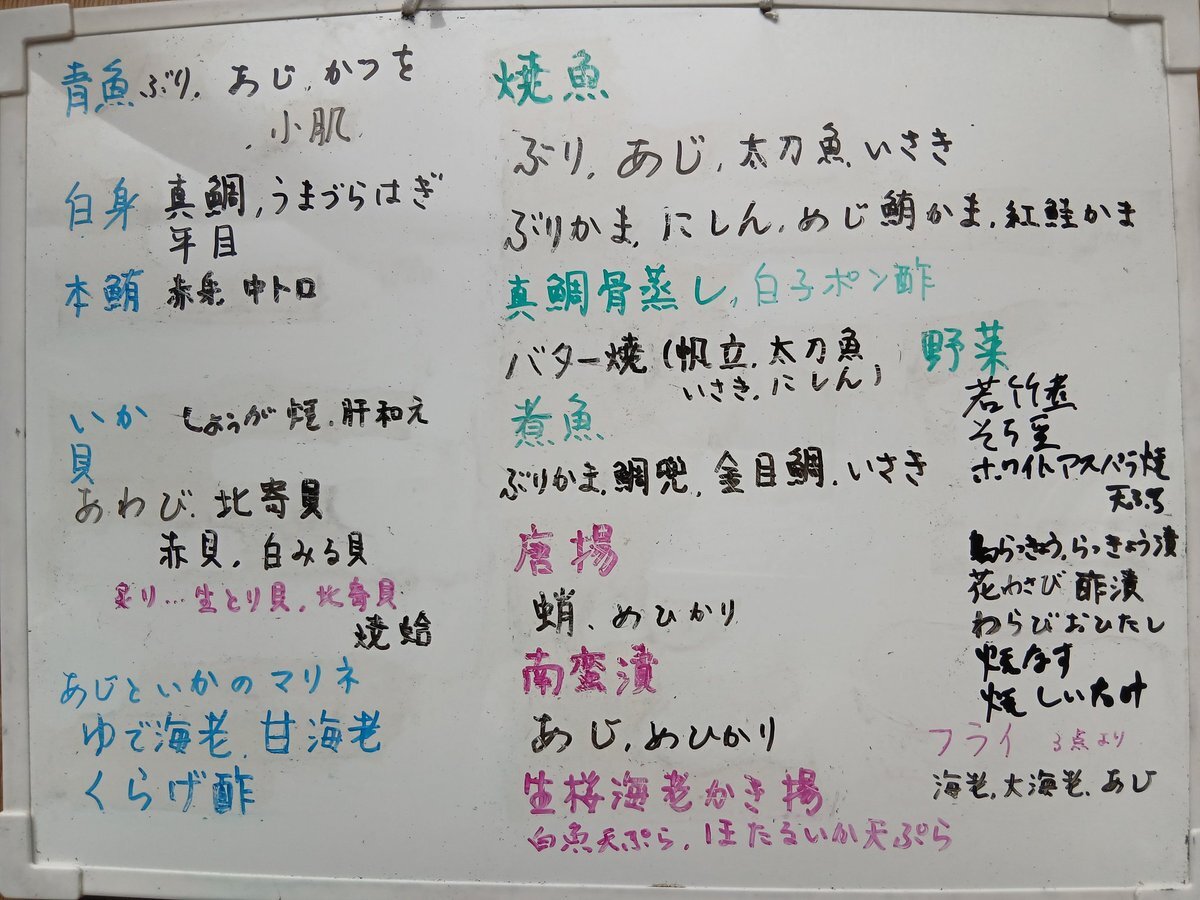 青魚 ぶり、あじ、かつを
小肌
白身 真鯛、うまづらはぎ
平目
本鮪 赤身、中トロ
いか しょうが煮、肝和え
貝
あわび、北寄貝
赤貝、白みる貝
炙り…生とり貝、北寄貝
焼蛤
あじといかのマリネ
ゆで海老、甘海老
くらげ酢
焼魚
ぶり、あじ、太刀魚、いさき
ぶりかま、にしん、めじ鮪かま、紅鮭かま
真鯛骨蒸し、白子ポン酢
バター焼(帆立、太刀魚
いさき、にしん)
煮魚
ぶりかま、鯛兜、金目鯛、いさき
唐揚
蛸、めひかり
南蛮漬
あじ、めひかり
生桜海老かき揚
白魚天ぷら、ほたるいか天ぷら
野菜
若竹煮
そら豆
ホワイトアスパラ焼
天ぷら
島らっきょう、らっきょう漬
花わさび 酢漬
わらびおひたし
焼なす
焼しいたけ
フライ 3点より
海老、大海老、あじ